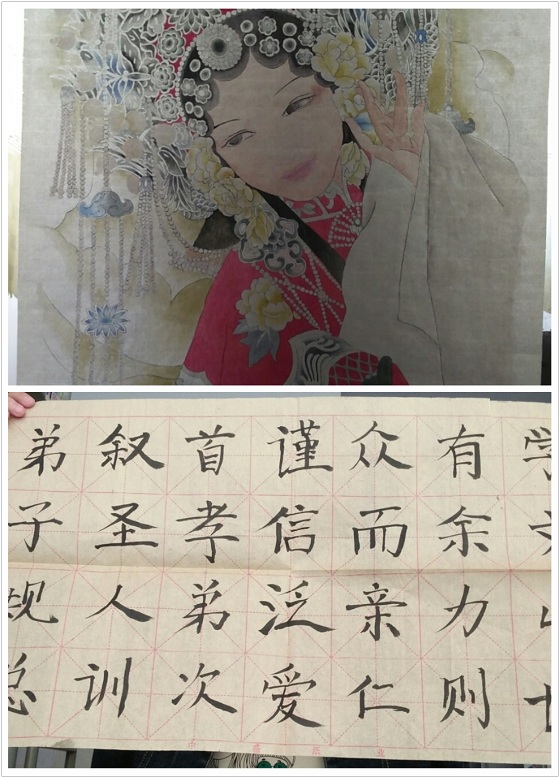 弟子规总
叙圣人训
首孝弟次
谨信泛爱
众而亲仁
有余力则
学